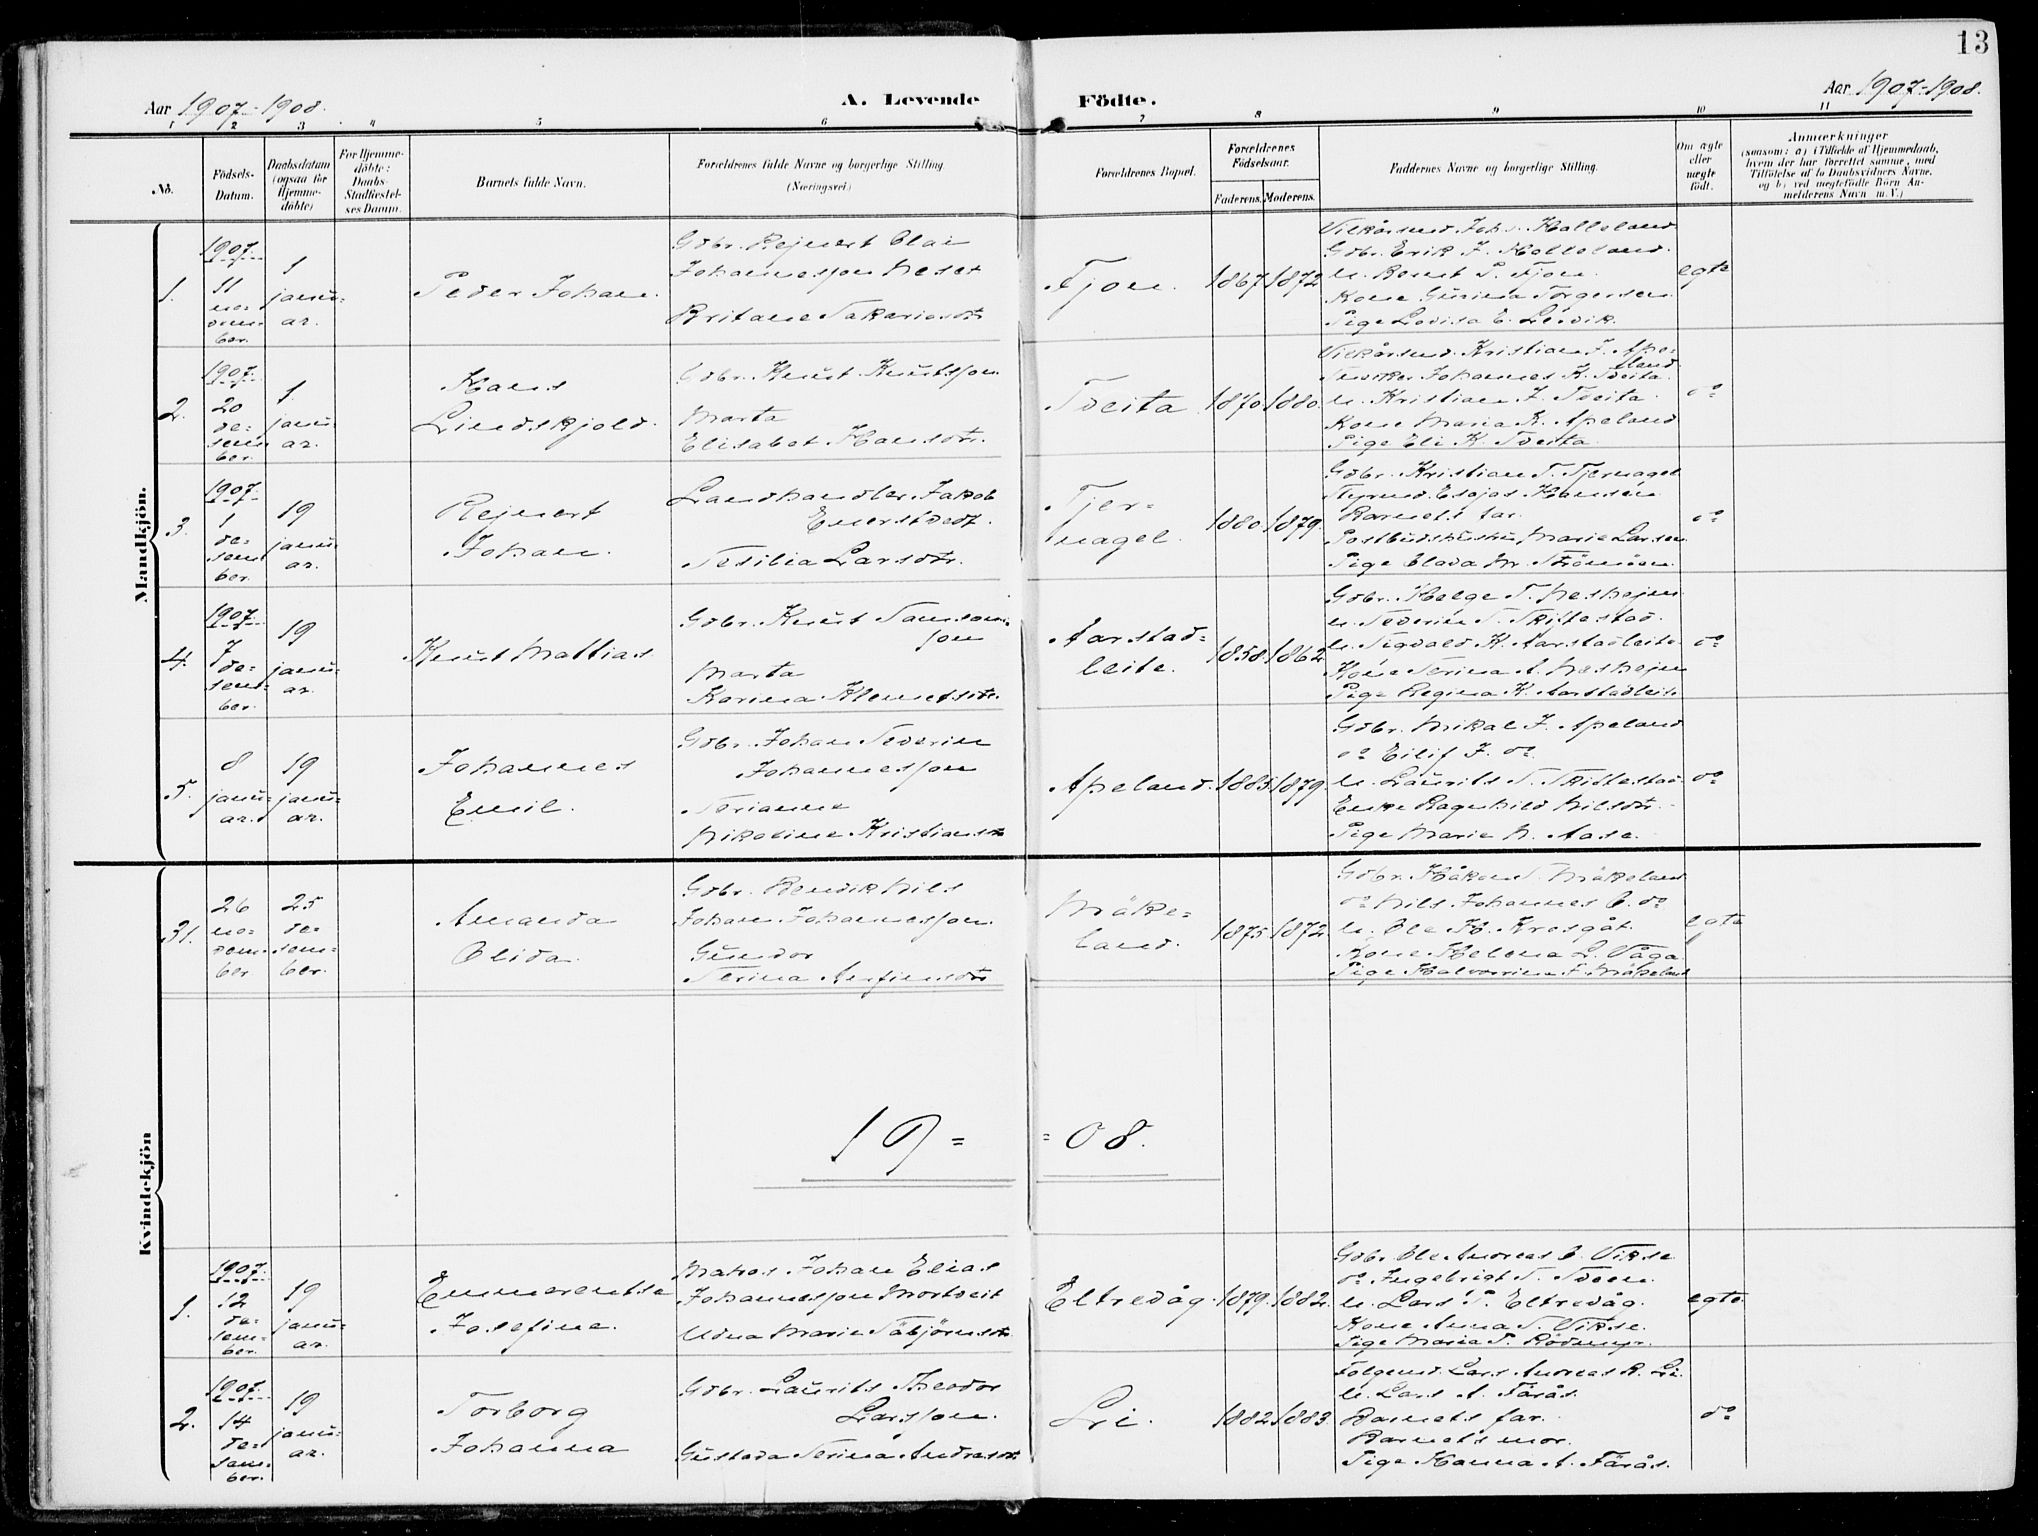 13
Aar 1907-1908.
A. Levende
Födte.
Aar 1907-1908.
1 2 3 4 5 6 7 8 9 10 11
No.
Födsels-
Datum.
Daabsdatum
(ogsaa for
Hjemme-
döbte)
For Hjemme-
döbte:
Daabs-
Stadfæstel-
ses Datum.
Barnets fulde Navn.
Forældrenes fulde Navne og borgerlige Stilling.
(Næringsvei.)
Forældrenes Bopæl.
Forældrenes
Födselsaar.
Faderens.
Moderens.
Faddernes Navne og borgerlige Stilling.
Om ægte
eller
uægte
födt.
Anmærkninger
(saasom: a) i Tilfælde af Hjemmedaab,
hvem der har forrettet samme, med
Tilföielse af to Daabsvidners Navne,
og b) ved uægtefödte Börn An-
melderens Navn m. V.)
Mandkjön.
1.
1907.
11
no-
vem-
ber.
1
janu-
ar.
Peder Johan.
Gdbr. Rejnert Olai
Johannesson Neset
Britane Sakariasdtr
Fjon.
1867
1872
Vilkårsmd. Johs. Halleland
Gdbr. Erik J. Halleland.
u. Bernt S. Fjon.
Kone Gurina Torgersen.
Pige Lovisa E. Leivik.
egte
2.
1907.
20
de-
sem-
ber.
1.
janu-
ar.
Hans
Lindskjold.
Gdbr. Knut Knutsson.
Marta
Elisabet Hansdtr.
Tveita
1870.
1880.
Vilkårsmd. Kristian J. Ape-
land.
Johannes K. Tveita.
u. Kristian J. Tveita.
Kone Maria K. Apeland
Pige Eli K. Tveita.
do
3.
1907.
1
de-
sem-
ber.
19
janu-
ar.
Rejnert
Johan.
Landhandler Jakob
Enerstvedt.
Sesilia Larsdtr.
Tjer-
nagel.
1880.
1879.
Gdbr. Kristian T. Tjernagel
Styrmd. Esajas Hansen.
Barnets far.
Marie Larsen.
Pige Olava M. Strömöen.
do
4.
1907.
7
de-
sem-
ber.
19
janu-
ar.
Knut Mattias
Gdbr. Knut Samson-
son
Marta
Karina Klemetsdtr.
Aarstad-
leite.
1858.
1862.
Gdbr. Helge T. Neshejm
u. Severin S. Skiftestad.
u. Sigvald K. Aarstadleite
Kone Serina A. Neshejm
Pige Regina K. Aarstadleite
do
5.
8
janu-
ar.
19
janu-
ar.
Johannes
Emil.
Gdbr. Johan Severin
Johannesson
Serianna
Nikoline Kristiansdtr
Apeland.
1885.
1879.
Gdbr. Mikal J. Apeland
do Eilif J. do
u. Laurits S. Skiftestad.
Enke Ragnhild Nilsdtr.
Pige Marie M. Aase.
do
Kvindekjön
31.
26
no-
vem-
ber.
25
de-
sem-
ber.
Amanda
Olida.
Gdbr. Bendik Nils
Johan Johannesson.
Gundor
Serina Arnfinnsdtr
Mäke-
land.
1875.
1872.
Gdbr. Håkon S. Mäkeland
do Nils Johannes O. do
u. Ole H. Krosgåt.
Kone Helena L. Våga
Pige Halvorrine J. Mäkeland
egte
19=
=08.
1.
1907.
12
de-
sem-
ber.
19
janu-
ar.
Emmerentse
Josefine.
Matros Johan Elias
Johannesson Mortveit
Udna Marie Täbjörnsdtr.
Eltrevåg.
1879.
1882.
Gdbr. Ole Andreas O. Vikse
do Ingebrigt S. Tveen.
u. Lars P. Eltrevåg.
Kone Anna S. Vikse.
Pige Maria T. Rödmyr.
egte.
2.
1907.
14
de-
sem-
ber.
19
janu-
ar.
Torborg
Johanna
Gdbr. Laurits Theodor
Larsson.
Gustava Serina Andrasdtr.
Li.
1882.
1883.
Folgemd. Lars Andreas R. Li.
u. Lars A. Färås.
Barnets far.
Barnets mor.
Pige Hanna A. Färås.
do